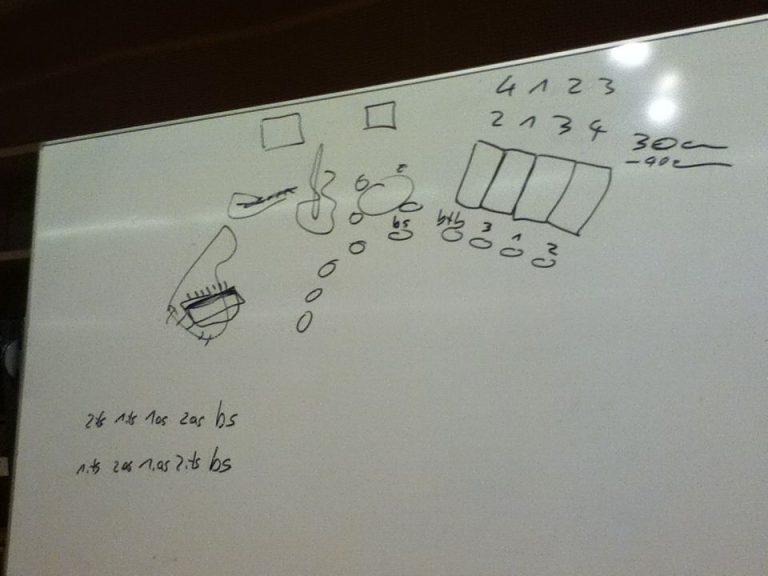 4 1 2 3
2 1 3 4
30c
-40c
bs
btb 3 1 2
2ts 1ts 1as 2as bs
1.ts 2as 1.as 2.ts bs